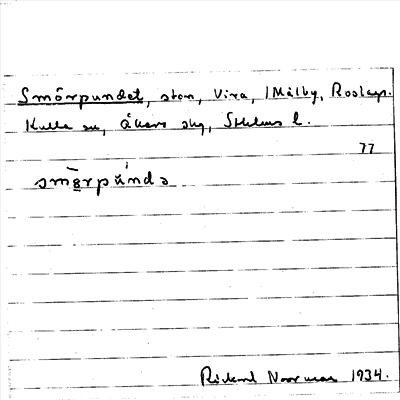 Smörpundet, sten, Vira, 1 Målby, Roslags-
Kulla sn, Åkers skg, Sthlms l.
77
smö̀rpúndə
Rickard Noorman 1934.